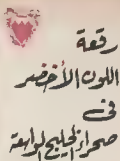 رقعة
اللون الأخضر
فى
صحراء الخليج الواسعة